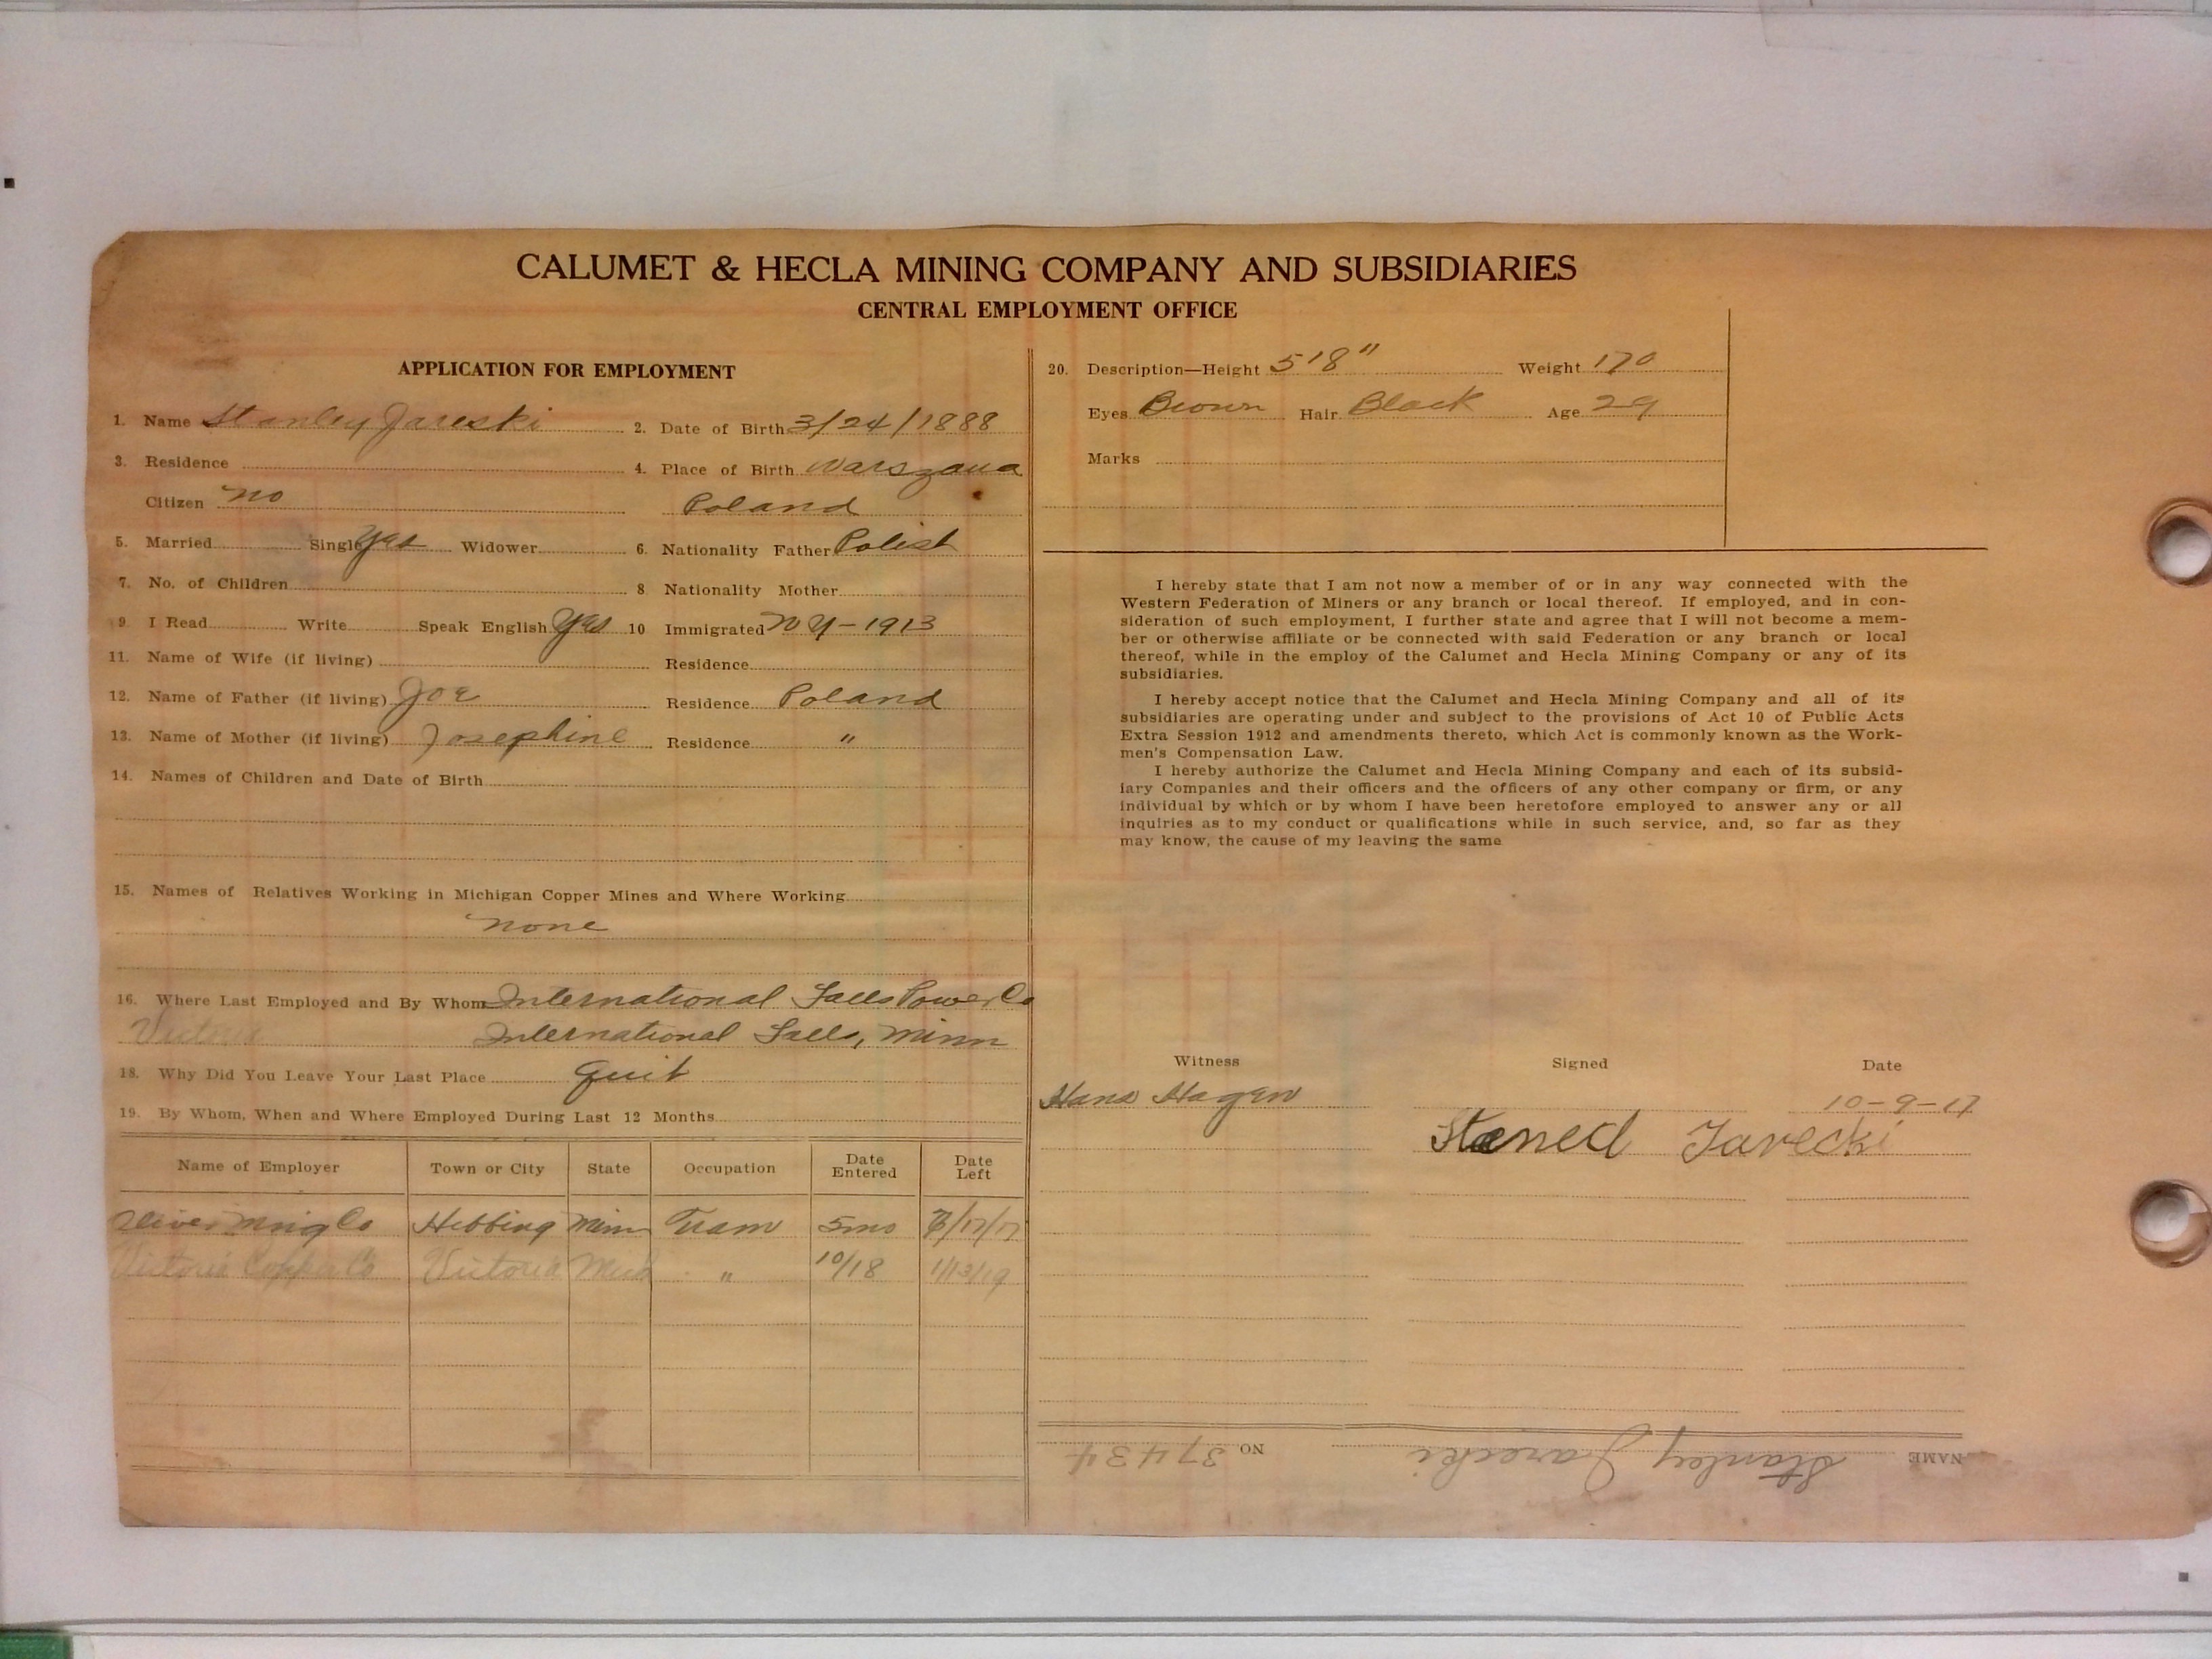 CALUMET & HECLA MINING COMPANY AND SUBSIDIARIES
CENTRAL EMPLOYMENT OFFICE
APPLICATION FOR EMPLOYMENT
1. Name Stanley Jareski 2. Date of Birth 3/24/1888
3. Residence 4. Place of Birth Warszaua
Citizen no Poland
5. Married Single yes Widower 6. Nationality Father Polish
7. No. of Children 8 Nationality Mother
9. I Read Write Speak English yes 10 Immigrated N Y - 1913
11. Name of Wife (if living) Residence
12. Name of Father (if living) Joe Residence Poland
13. Name of Mother (if living) Josephine Residence "
14. Names of Children and Date of Birth
15. Names of Relatives Working in Michigan Copper Mines and Where Working
none
16. Where Last Employed and By Whom International Falls Power Co
Victoria International Falls, Minn
18. Why Did You Leave Your Last Place quit
19. By Whom, When and Where Employed During Last 12 Months
Name of Employer Town or City State Occupation Date Entered Date Left
Oliver Mng Co Hibbing Minn Tram 5mo /17/17
Victoria Copper Co Victoria Mich " 10/18 1/13/19
20. Description—Height 5'8" Weight 170
Eyes Brown Hair Black Age 29
Marks
I hereby state that I am not now a member of or in any way connected with the
Western Federation of Miners or any branch or local thereof. If employed, and in con-
sideration of such employment, I further state and agree that I will not become a mem-
ber or otherwise affiliate or be connected with said Federation or any branch or local
thereof, while in the employ of the Calumet and Hecla Mining Company or any of its
subsidiaries.
I hereby accept notice that the Calumet and Hecla Mining Company and all of its
subsidiaries are operating under and subject to the provisions of Act 10 of Public Acts
Extra Session 1912 and amendments thereto, which Act is commonly known as the Work-
men's Compensation Law.
I hereby authorize the Calumet and Hecla Mining Company and each of its subsid-
iary Companies and their officers and the officers of any other company or firm, or any
individual by which or by whom I have been heretofore employed to answer any or all
inquiries as to my conduct or qualifications while in such service, and, so far as they
may know, the cause of my leaving the same
Witness Signed Date
Hans Hagen 10-9-17
Stened Jarecki
NAME Stanley Jarecki NO 37434